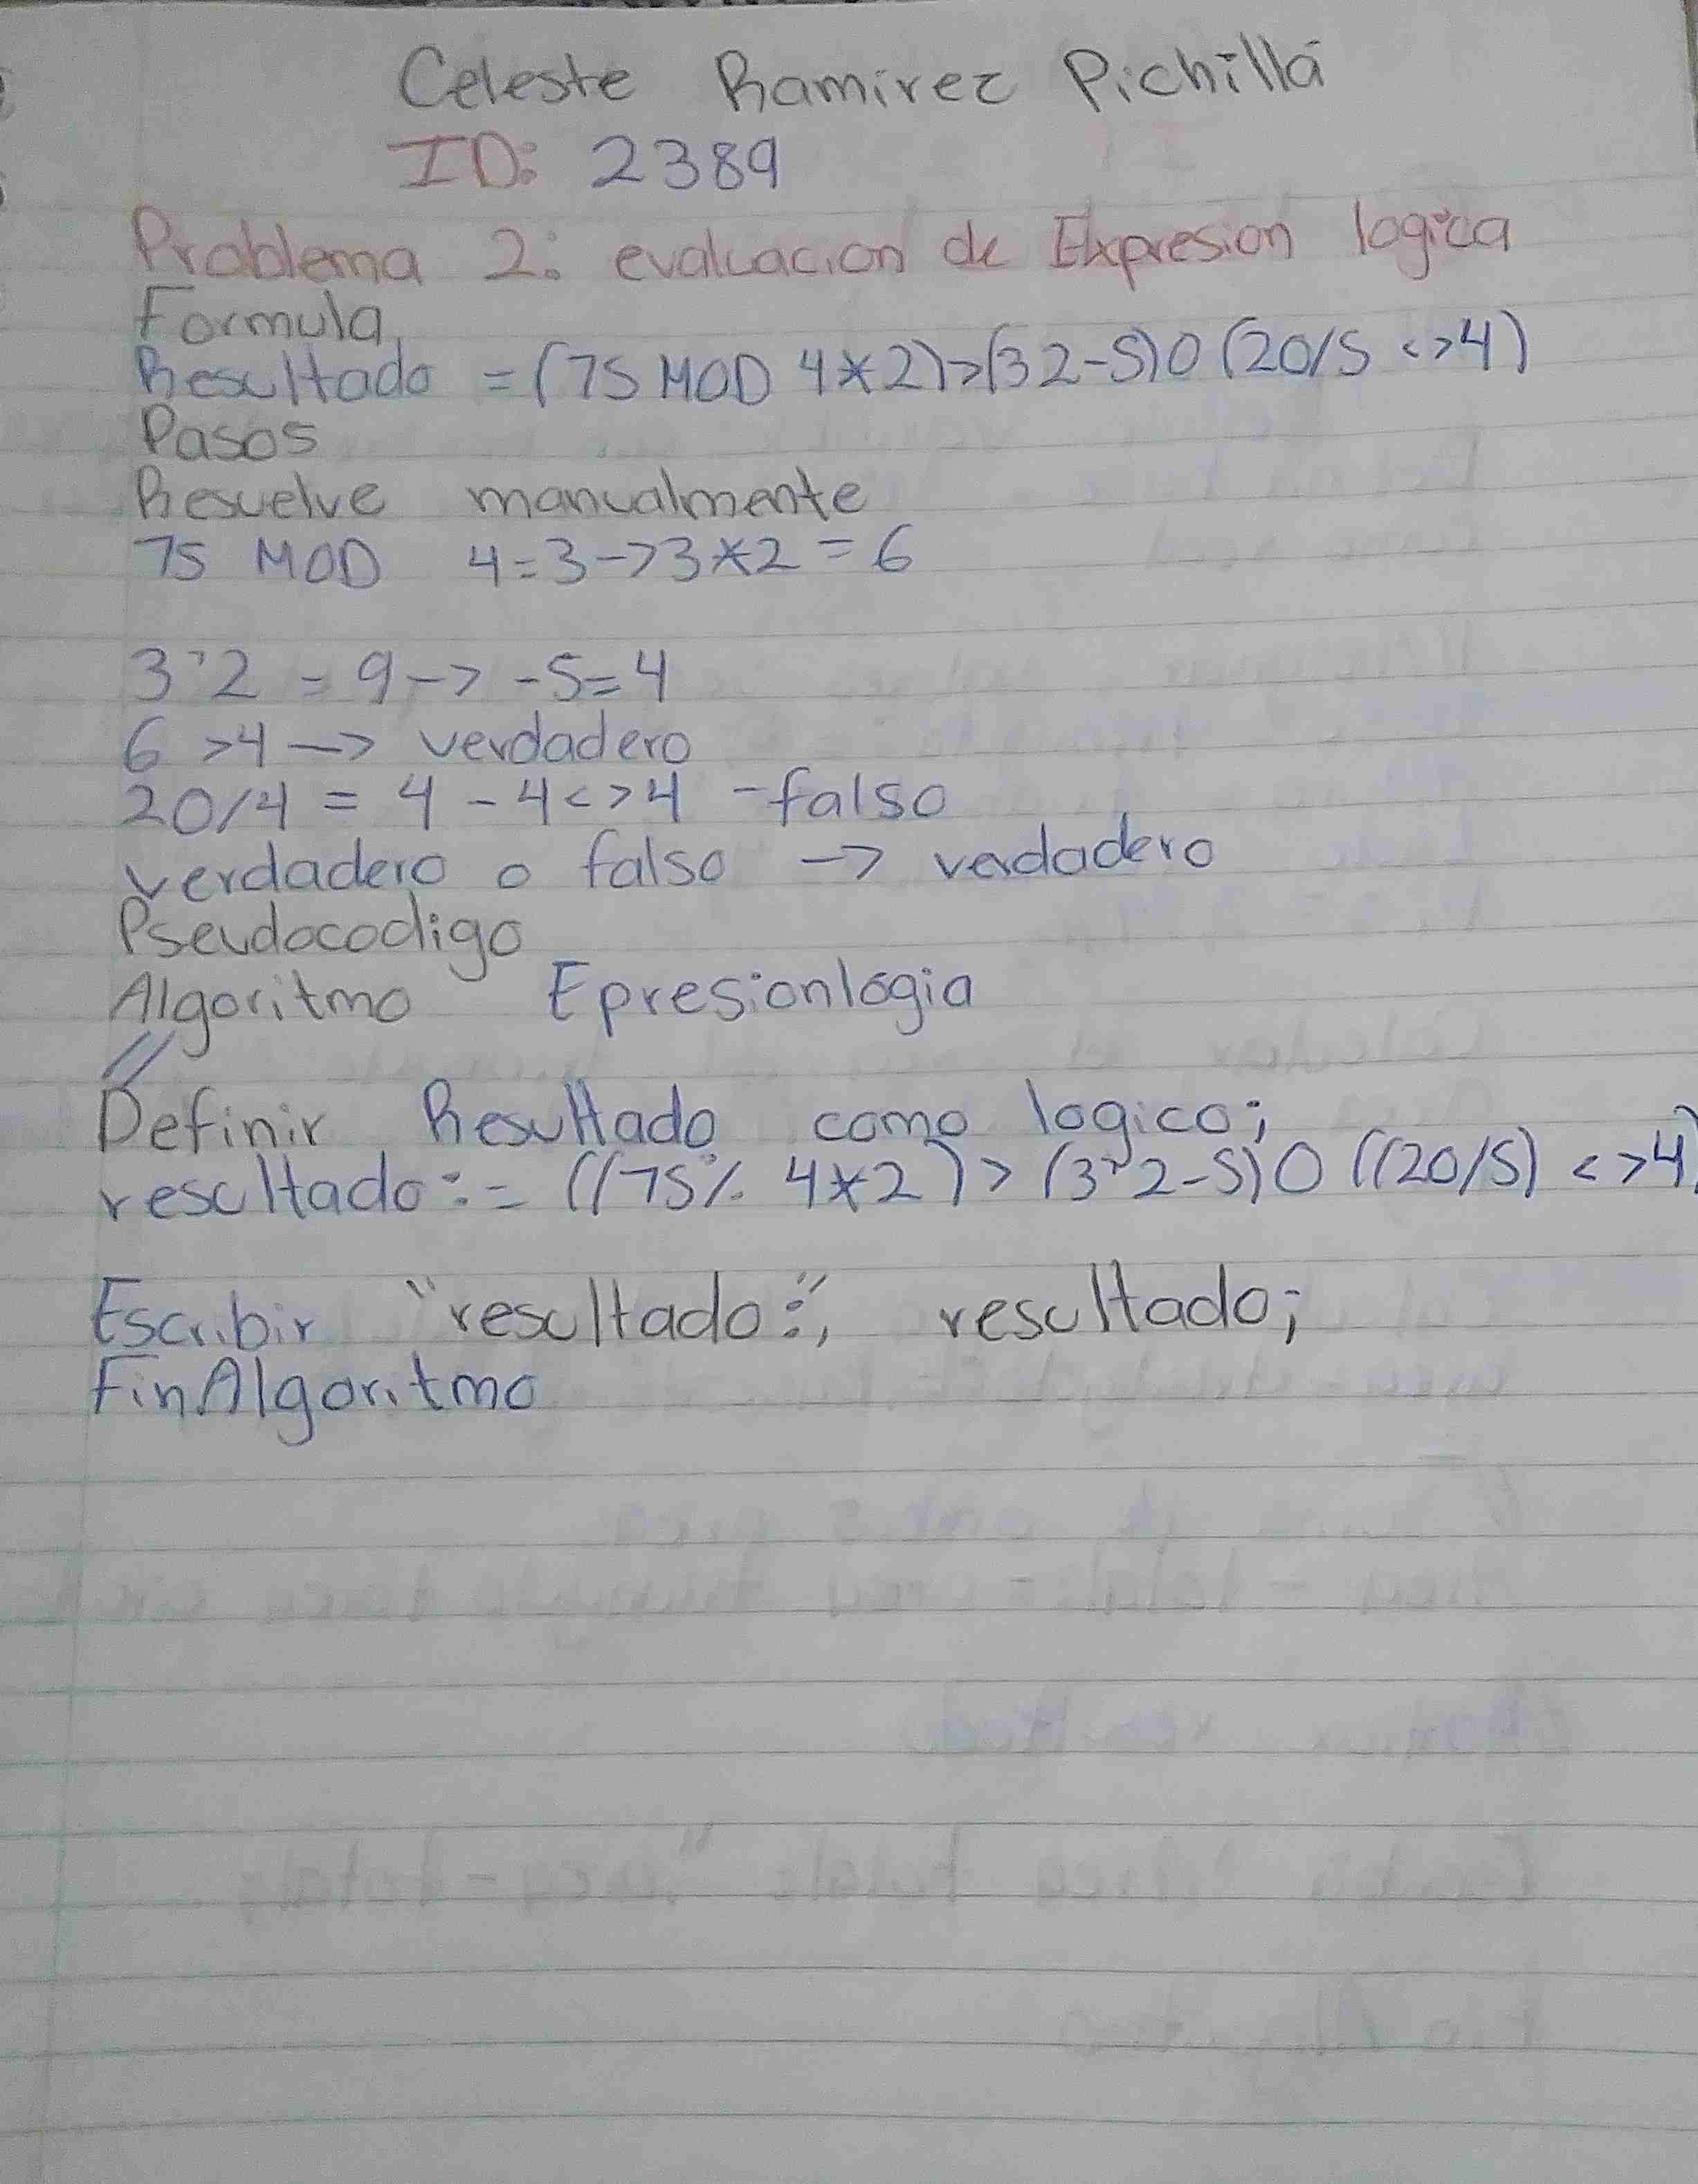 Celeste Ramirez Pichillá
ID: 2389
Problema 2: evaluacion de Expresion logica
Formula
Resultado = (75 MOD 4*2)>(32-5)O(20/5 <>4)
Pasos
Resuelve manualmente
75 MOD 4=3->3*2=6
3^2 = 9-> -5=4
6 >4 -> verdadero
20/4 = 4 - 4<>4 -falso
verdadero o falso -> verdadero
Pseudocodigo
Algoritmo Epresionlógia
Definir Resultado como logico;
resultado:= ((75% 4*2)> (3^2-5)O ((20/5) <>4)
Escribir "resultado:", resultado;
FinAlgoritmo